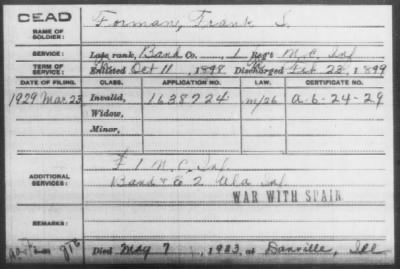 CEAD
NAME OF SOLDIER: Forman, Frank S.
SERVICE: Late rank, Band Co. 1 Reg't N.C. Inf
TERM OF SERVICE: Enlisted Oct 11, 1898 Discharged Feb 23, 1899
DATE OF FILING. CLASS. APPLICATION NO. LAW. CERTIFICATE NO.
1929 Mar. 23 Invalid, 1638724 m/26 A-6-24-29
Widow,
Minor,
ADDITIONAL SERVICES: F 1 N.C. Inf
Band & Co 2 Ala Inf
WAR WITH SPAIN
REMARKS:
Died May 7, 1933, at Danville, Ill